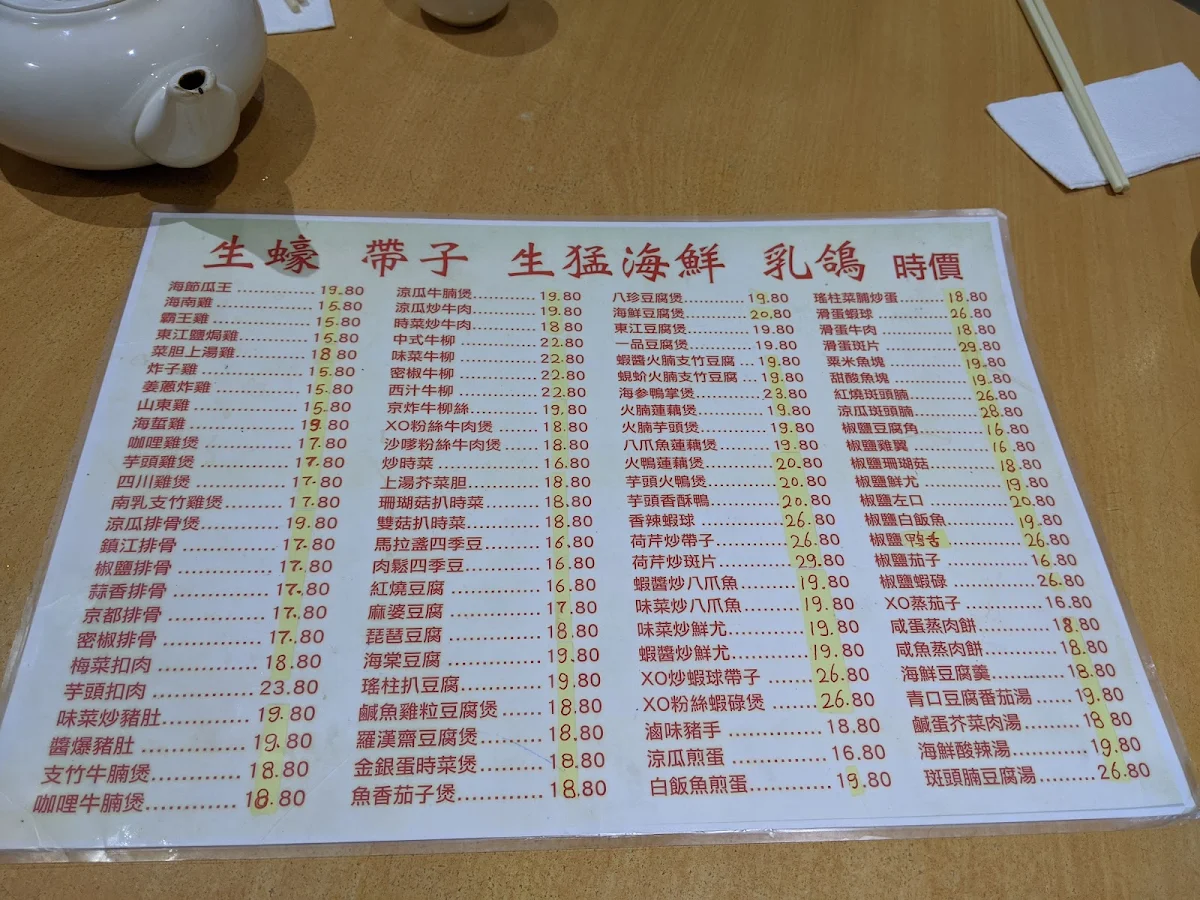 生蠔 帶子 生猛海鮮 乳鴿 時價
海節瓜王 19.80
海南雞 15.80
霸王雞 15.80
東江鹽焗雞 15.80
菜胆上湯雞 18.80
炸子雞 15.80
姜蔥炸雞 15.80
山東雞 15.80
海蜇雞 19.80
咖哩雞煲 17.80
芋頭雞煲 17.80
四川雞煲 17.80
南乳支竹雞煲 17.80
涼瓜排骨煲 19.80
鎮江排骨 17.80
椒鹽排骨 17.80
蒜香排骨 17.80
京都排骨 17.80
密椒排骨 17.80
梅菜扣肉 18.80
芋頭扣肉 23.80
味菜炒豬肚 19.80
醬爆豬肚 19.80
支竹牛腩煲 18.80
咖哩牛腩煲 18.80
涼瓜牛腩煲 19.80
涼瓜炒牛肉 19.80
時菜炒牛肉 18.80
中式牛柳 22.80
味菜牛柳 22.80
密椒牛柳 22.80
西汁牛柳 22.80
京炸牛柳絲 19.80
XO粉絲牛肉煲 18.80
沙嗲粉絲牛肉煲 18.80
炒時菜 16.80
上湯芥菜胆 18.80
珊瑚菇扒時菜 18.80
雙菇扒時菜 18.80
馬拉盞四季豆 16.80
肉鬆四季豆 16.80
紅燒豆腐 16.80
麻婆豆腐 17.80
琵琶豆腐 18.80
海棠豆腐 19.80
瑤柱扒豆腐 19.80
鹹魚雞粒豆腐煲 18.80
羅漢齋豆腐煲 18.80
金銀蛋時菜煲 18.80
魚香茄子煲 18.80
八珍豆腐煲 19.80
海鮮豆腐煲 20.80
東江豆腐煲 19.80
一品豆腐煲 19.80
蝦醬火腩支竹豆腐 19.80
蜆蚧火腩支竹豆腐 19.80
海参鴨掌煲 23.80
火腩蓮藕煲 19.80
火腩芋頭煲 19.80
八爪魚蓮藕煲 19.80
火鴨蓮藕煲 20.80
芋頭火鴨煲 20.80
芋頭香酥鴨 20.80
香辣蝦球 26.80
荷芹炒帶子 26.80
荷芹炒斑片 29.80
蝦醬炒八爪魚 19.80
味菜炒八爪魚 19.80
味菜炒鮮尤 19.80
蝦醬炒鮮尤 19.80
XO炒蝦球帶子 26.80
XO粉絲蝦碌煲 26.80
滷味豬手 18.80
涼瓜煎蛋 16.80
白飯魚煎蛋 19.80
瑤柱菜脯炒蛋 18.80
滑蛋蝦球 26.80
滑蛋牛肉 18.80
滑蛋斑片 29.80
粟米魚塊 19.80
甜酸魚塊 19.80
紅燒斑頭腩 26.80
涼瓜斑頭腩 28.80
椒鹽豆腐角 16.80
椒鹽雞翼 16.80
椒鹽珊瑚菇 18.80
椒鹽鮮尤 19.80
椒鹽左口 20.80
椒鹽白飯魚 19.80
椒鹽鸭舌 26.80
椒鹽茄子 16.80
椒鹽蝦碌 26.80
XO蒸茄子 16.80
咸蛋蒸肉餅 18.80
咸魚蒸肉餅 18.80
海鮮豆腐羹 18.80
青口豆腐番茄湯 19.80
鹹蛋芥菜肉湯 18.80
海鮮酸辣湯 19.80
斑頭腩豆腐湯 26.80